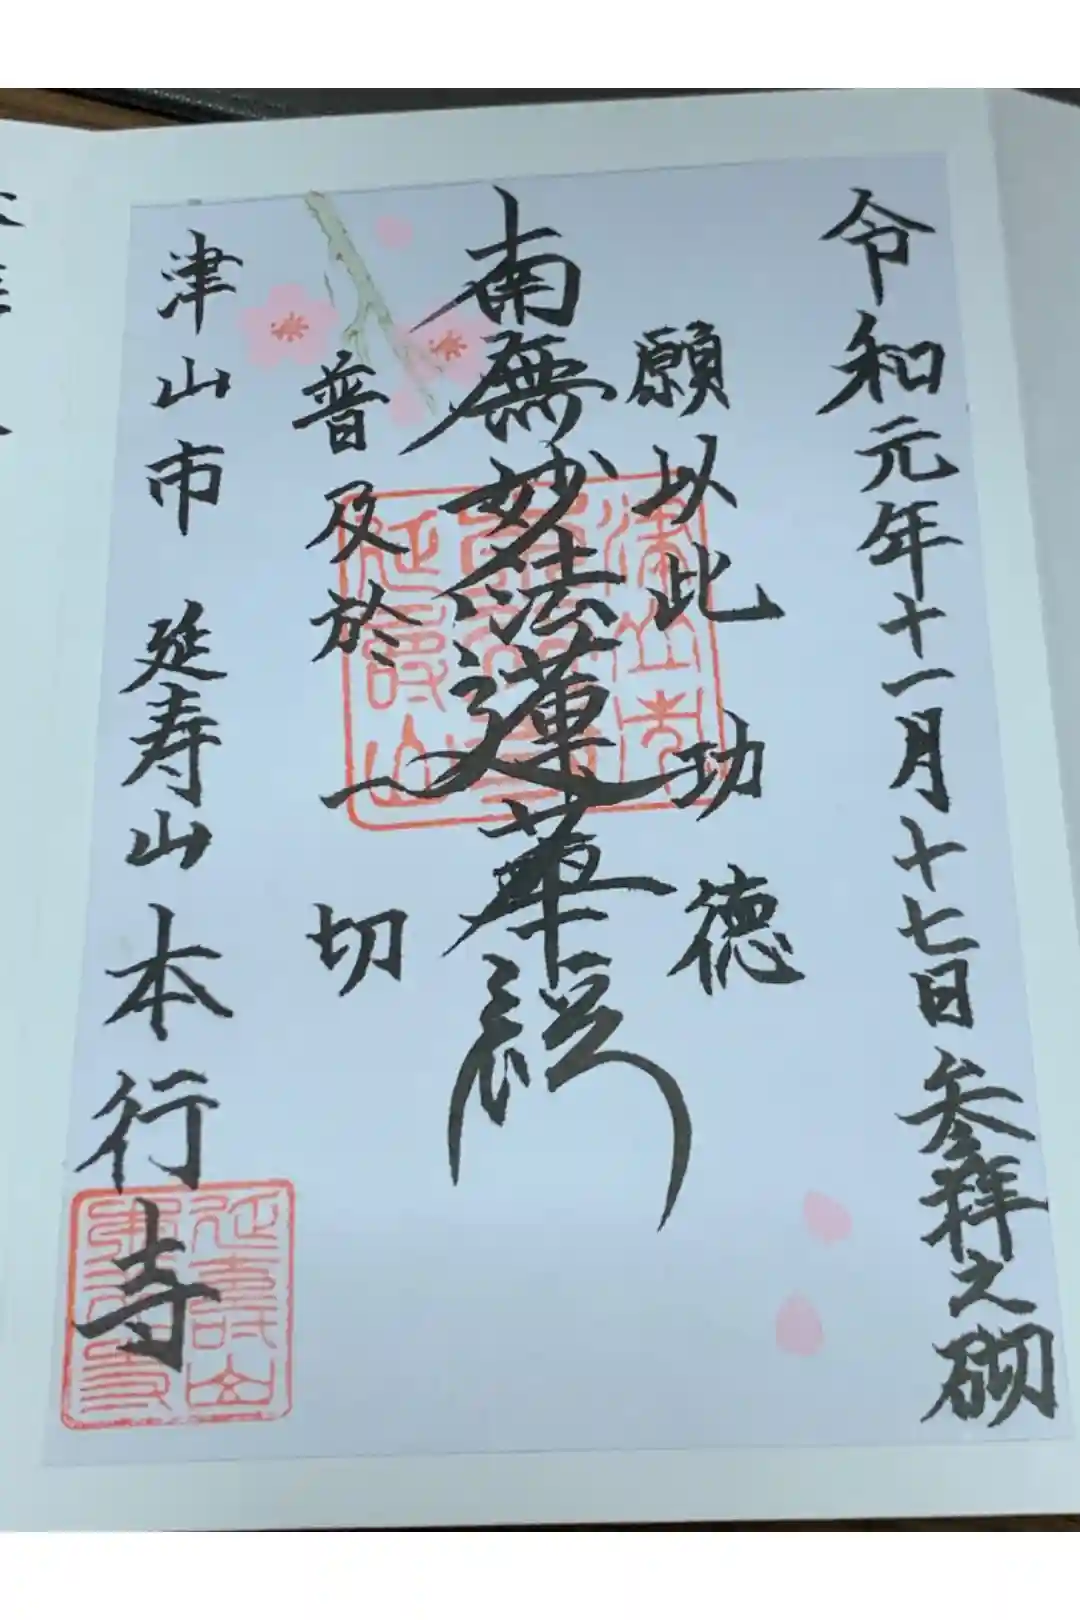 令和元年十一月十七日参拝之砌
願以此功徳
南無妙法蓮華経
普及於一切
津山市 延寿山 本行寺
延壽山